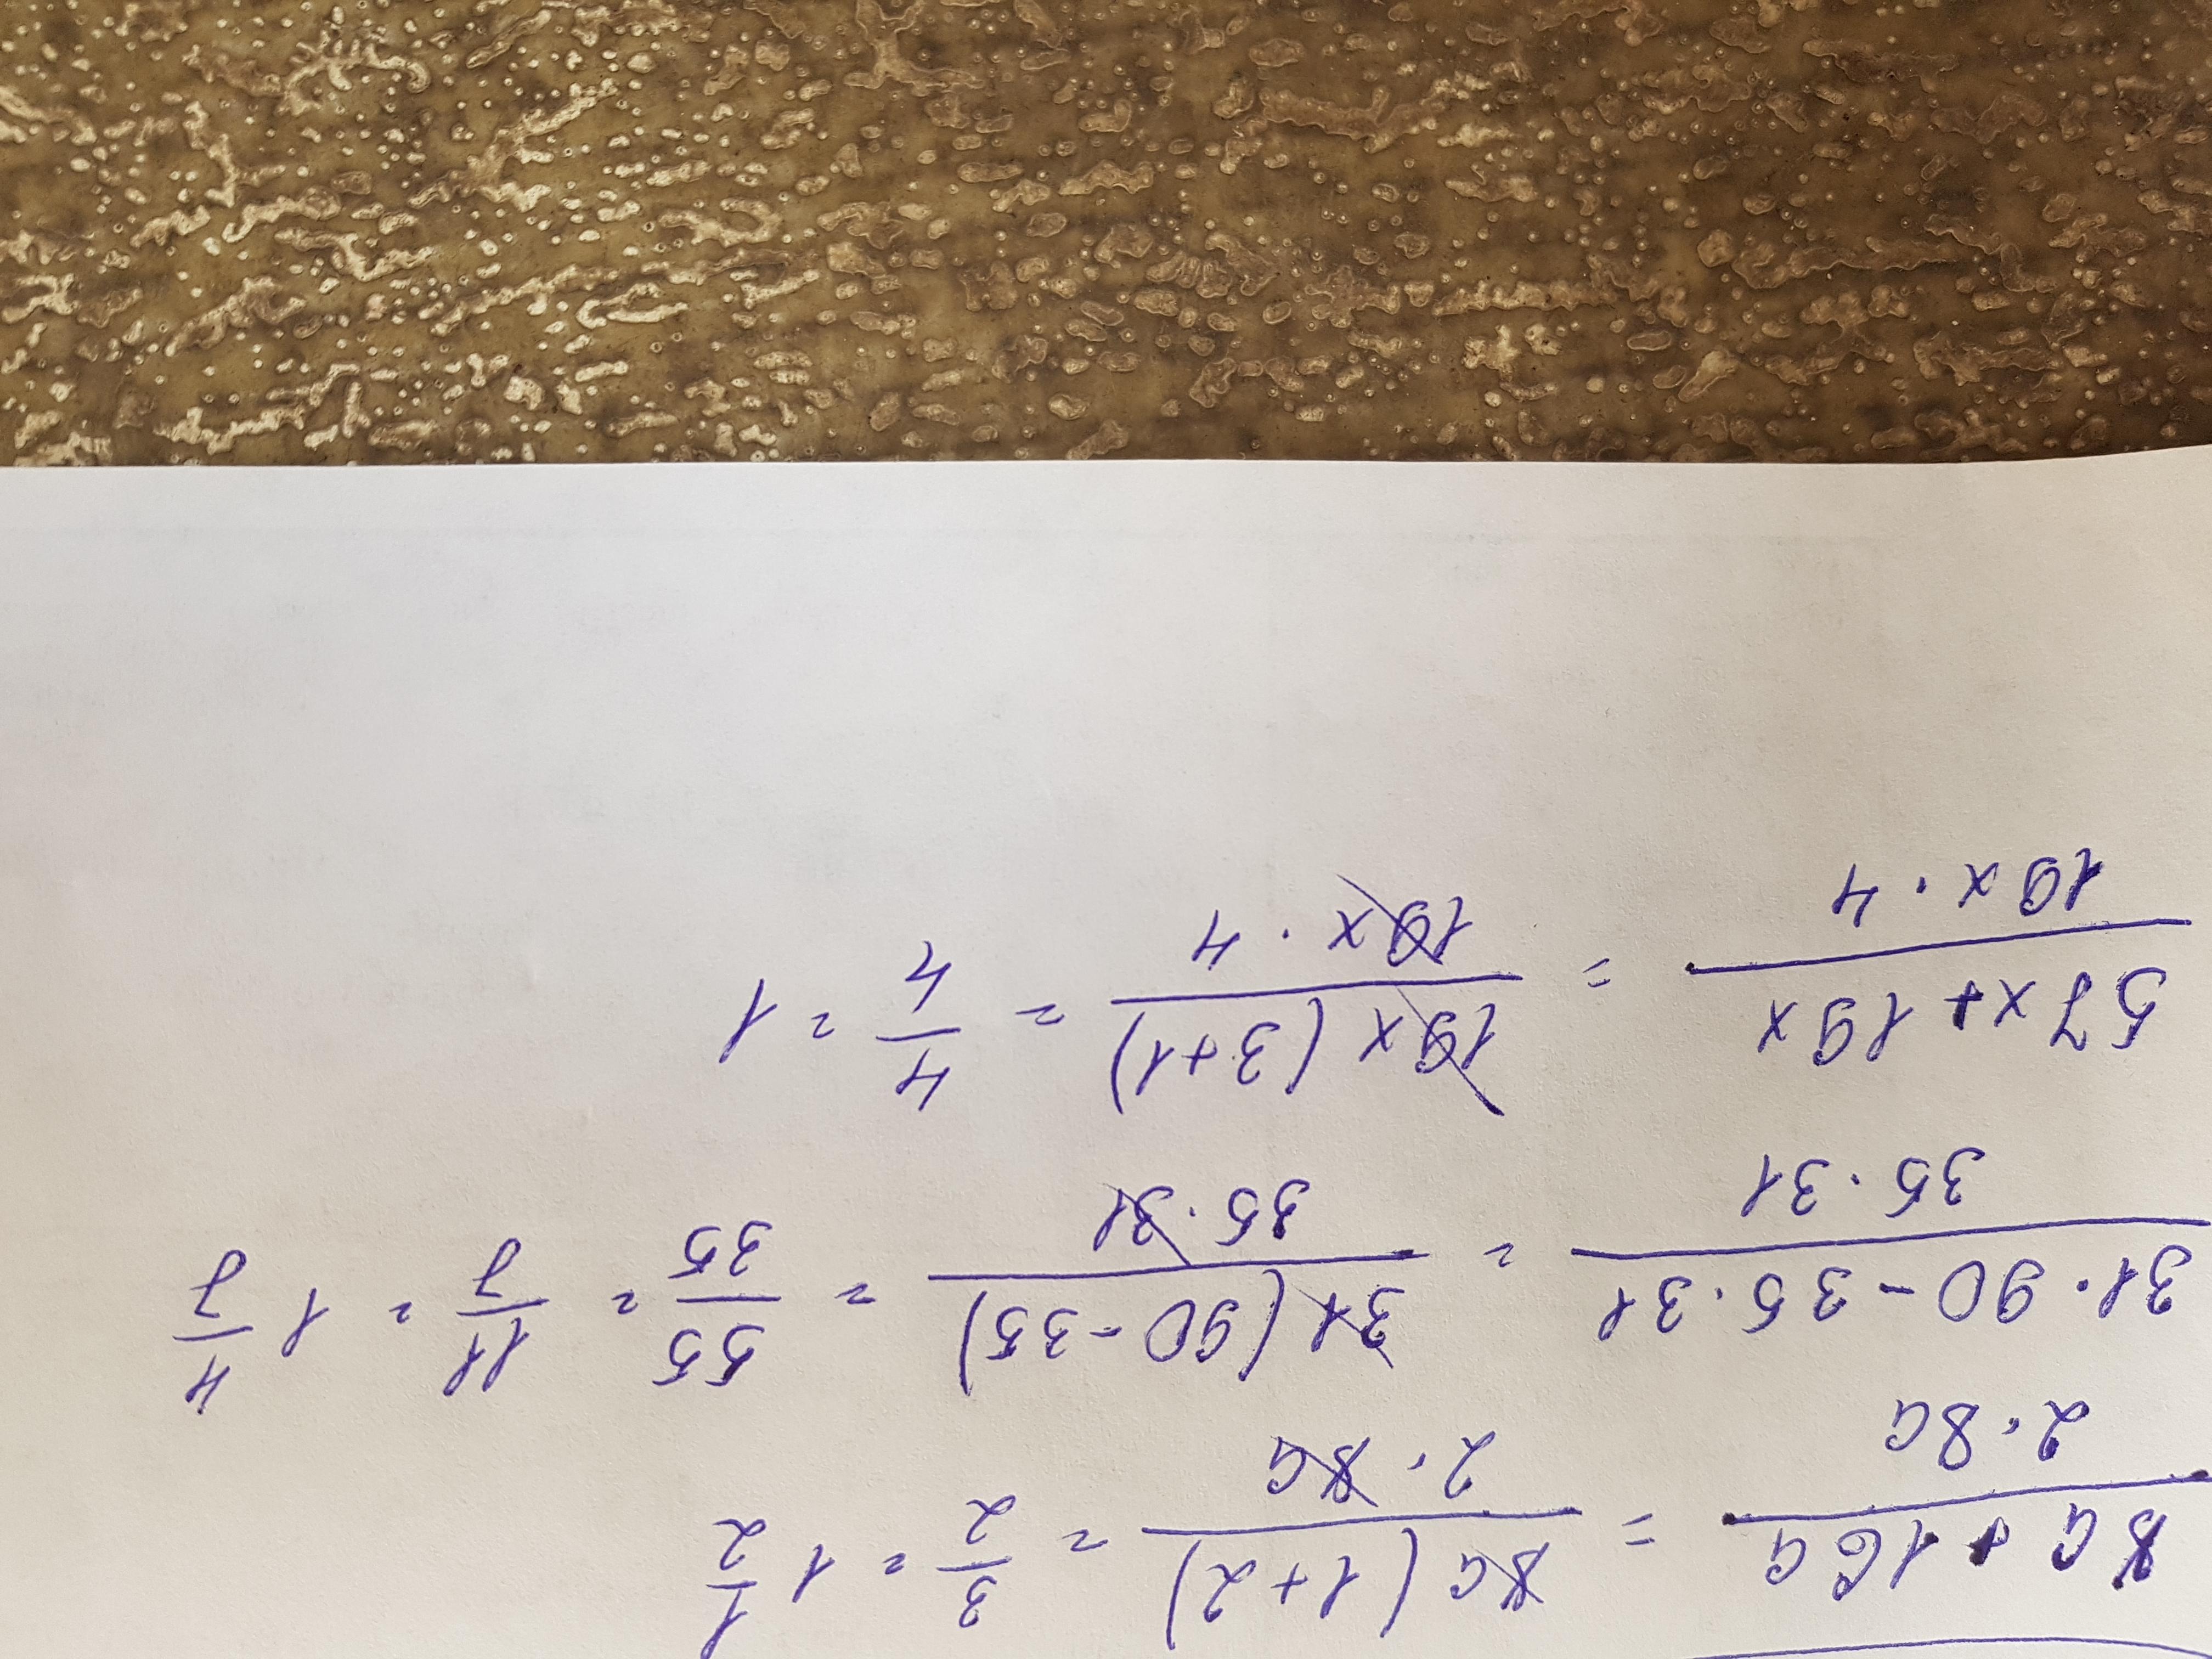 8a + 16a / 2 · 8a = 8a (1 + 2) / 2 · 8a = 3/2 = 1 1/2
31 · 90 - 35 · 31 / 35 · 31 = 31 (90 - 35) / 35 · 31 = 55/35 = 11/7 = 1 4/7
57x + 19x / 19x · 4 = 19x (3+1) / 19x · 4 = 4/4 = 1